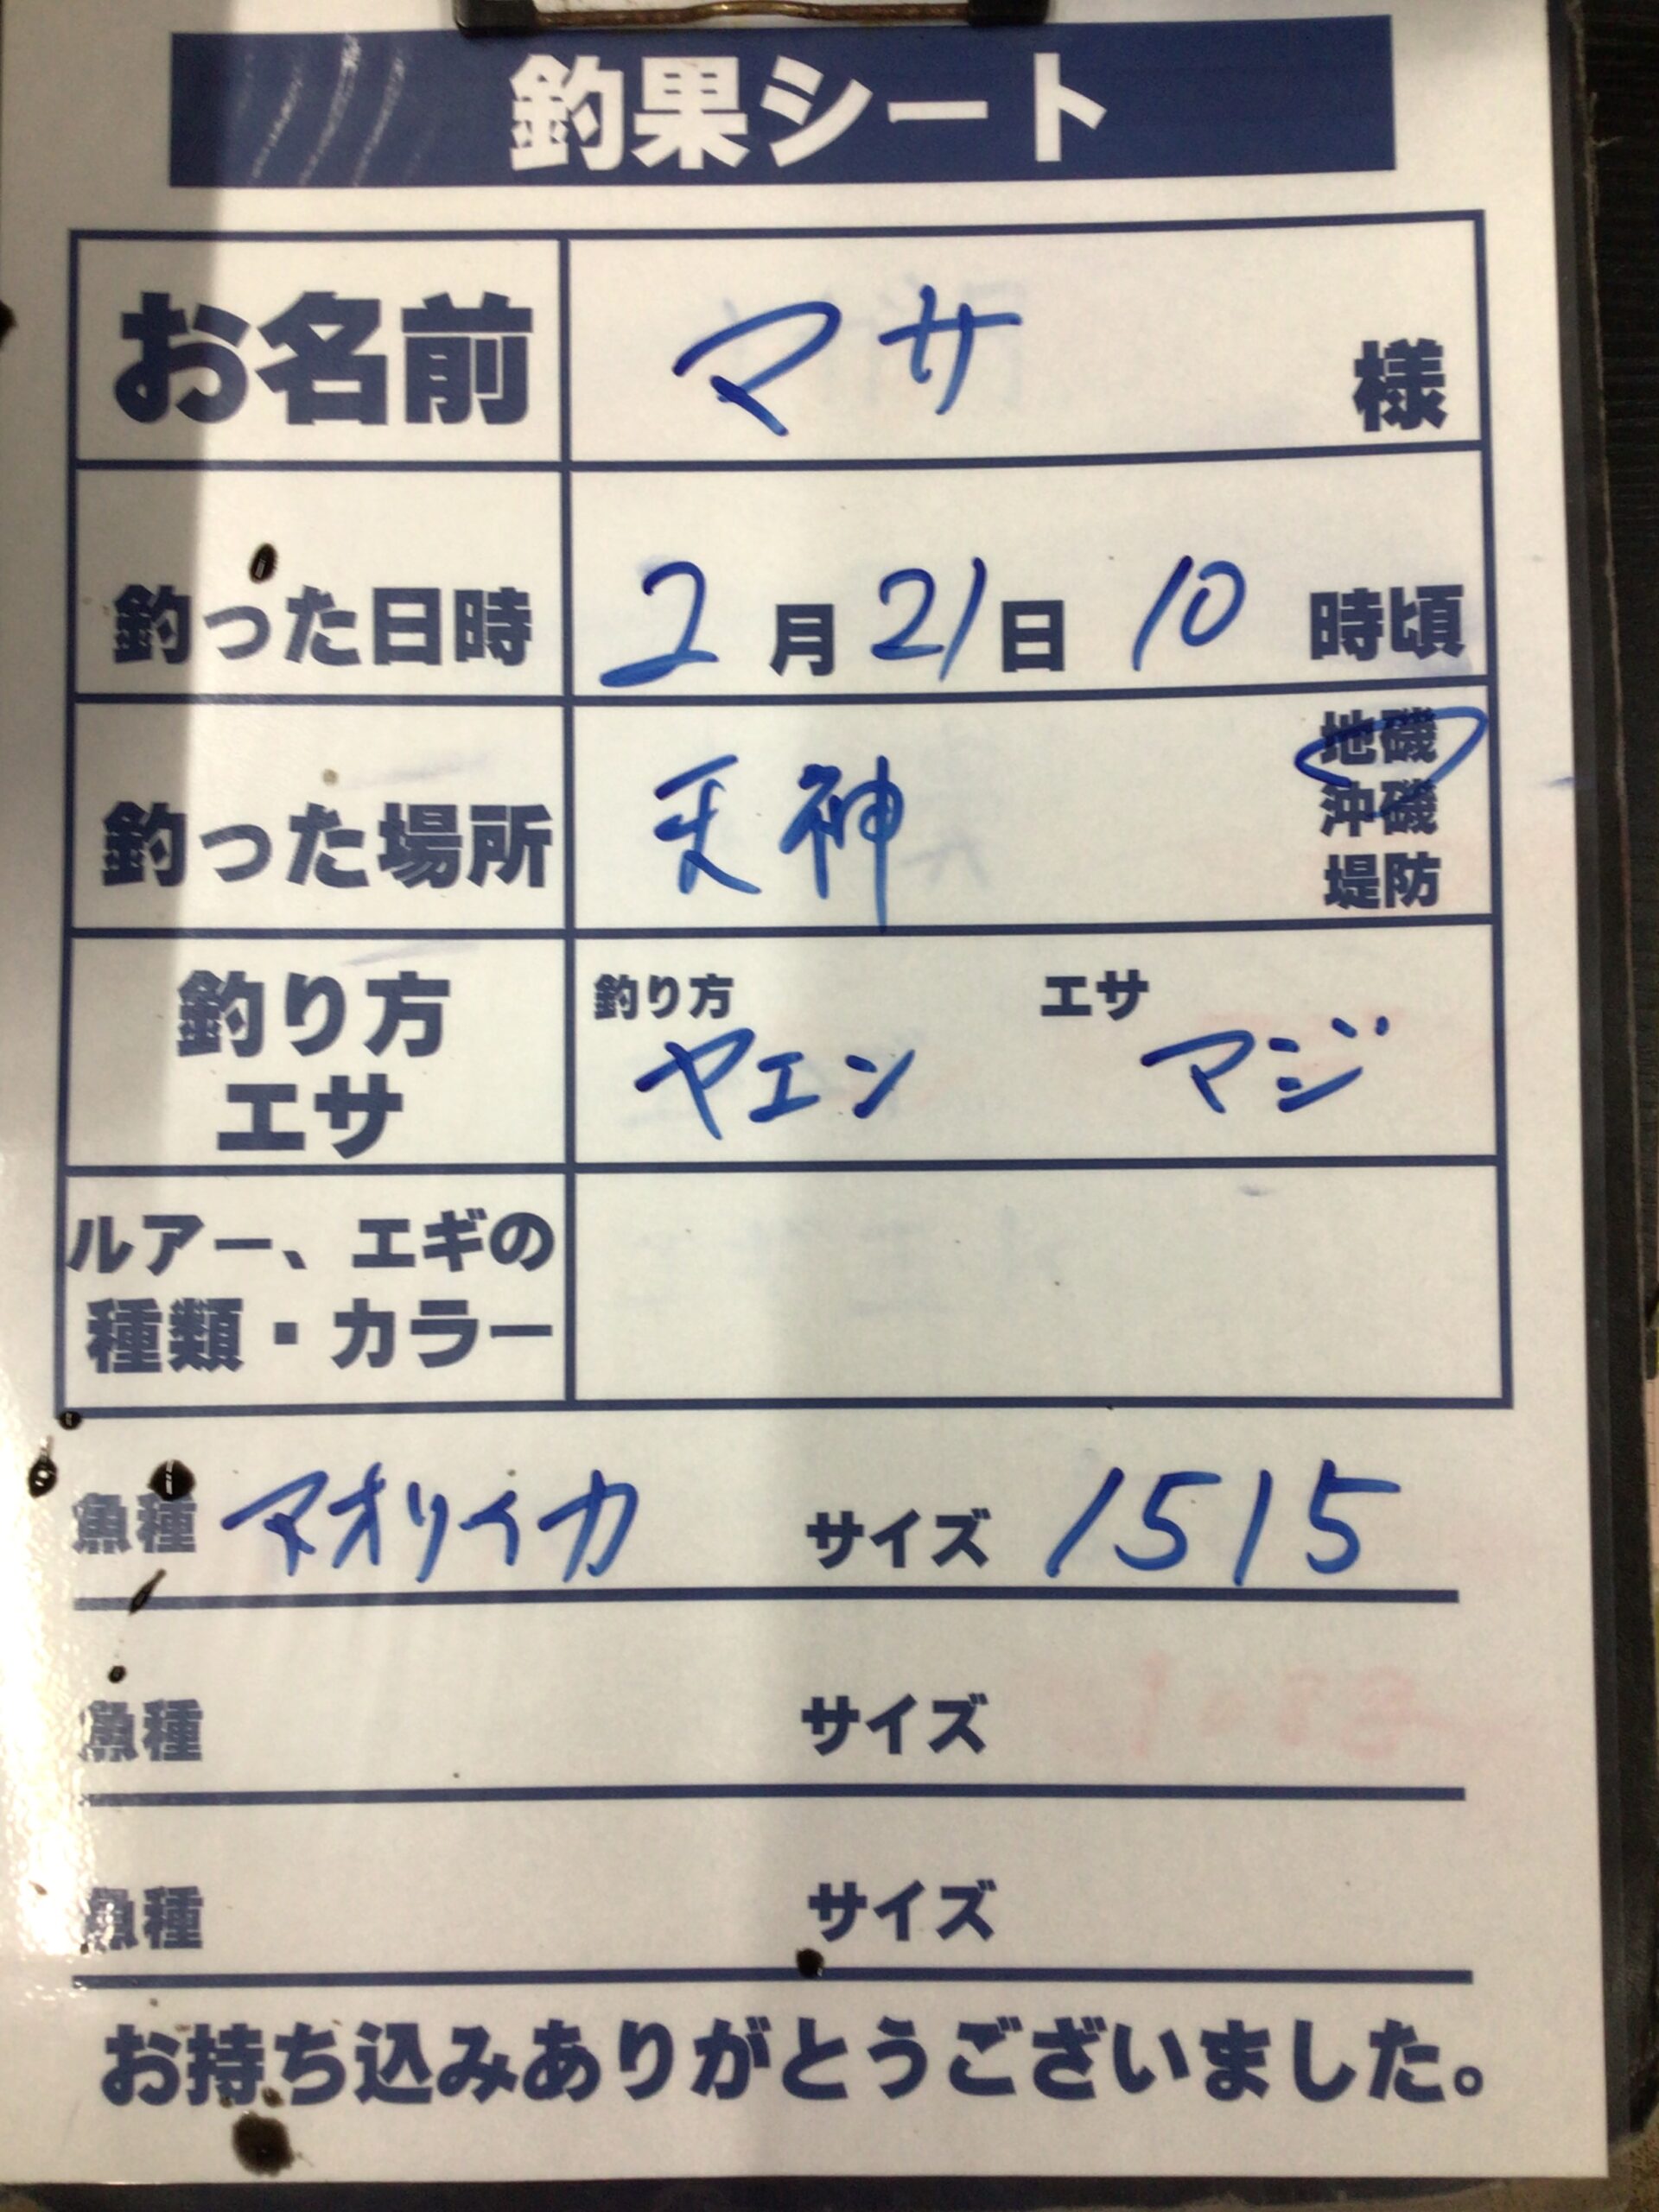 釣果シート
お名前 マサ 様
釣った日時 2月21日 10時頃
釣った場所 天神 地磯
沖磯
堤防
釣り方 エサ
釣り方
エサ
ヤエン マジ
ルアー、エギの
種類・カラー
魚種 アオリイカ サイズ 1515
魚種 サイズ
魚種 サイズ
お持ち込みありがとうございました。